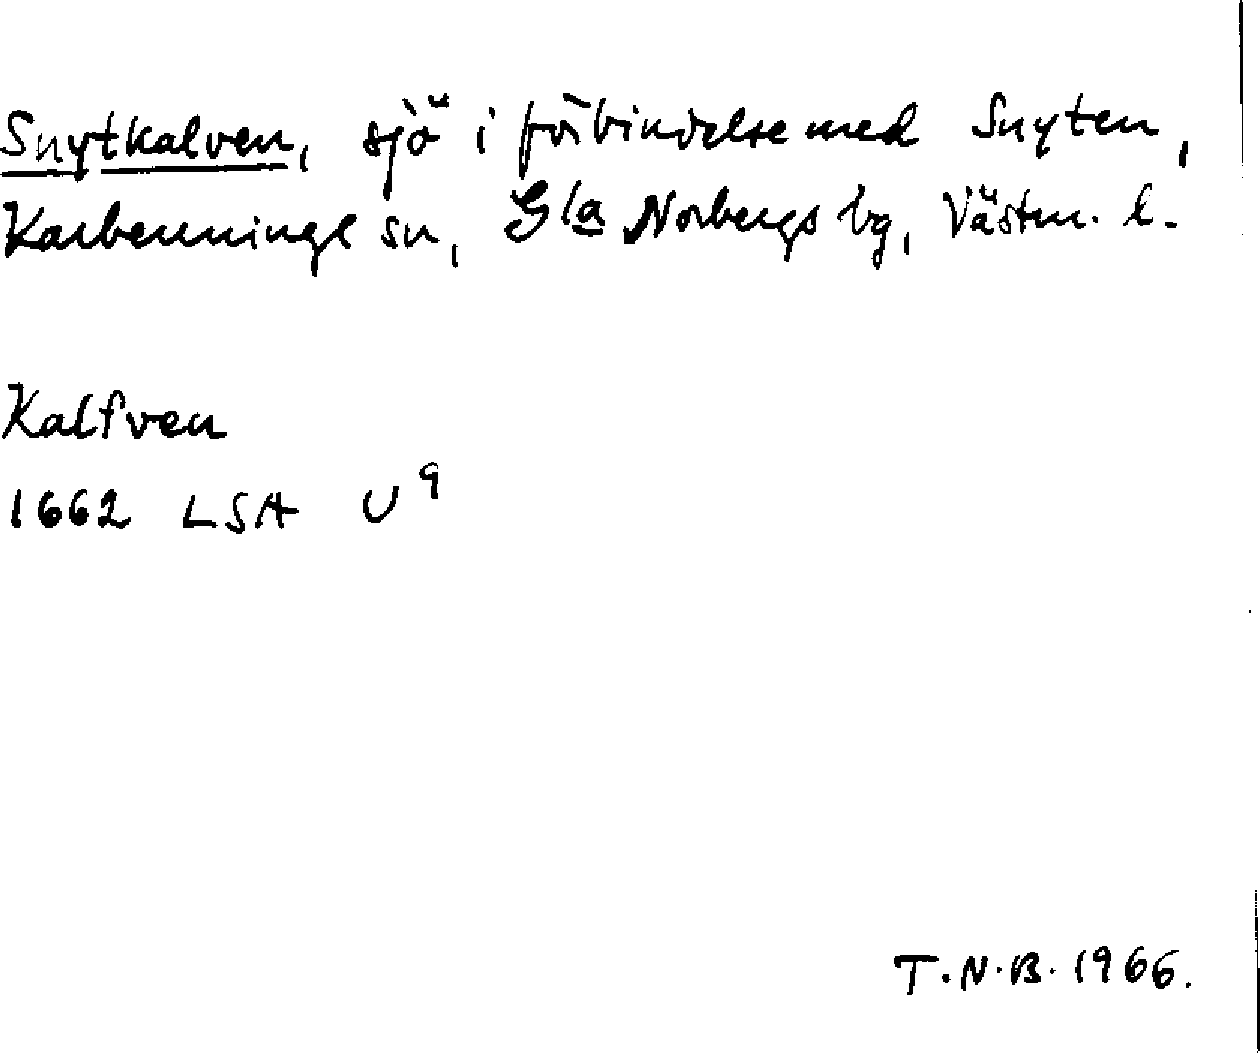 Snytkalven, sjö i förbindelse med Snyten,
Karbenninge sn, Gla Norbergs bg, Västm. l.
Kalfven
1662 LSA U 9
T.N.B. 1966.